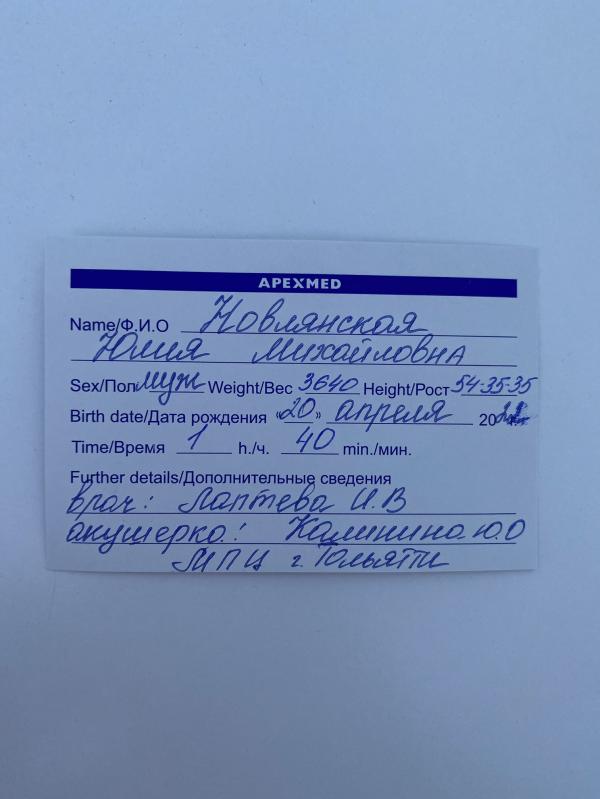 APEXMED
Name/Ф.И.О Новлянская
Юлия Михайловна
Sex/Пол муж Weight/Вес 3640 Height/Рост 54-35-35
Birth date/Дата рождения «20» апреля 20
Time/Время 1 h./ч. 40 min./мин.
Further details/Дополнительные сведения
врач: Лаптева И.В
акушерка: Калинина Ю.О
МПЦ г. Тольятти